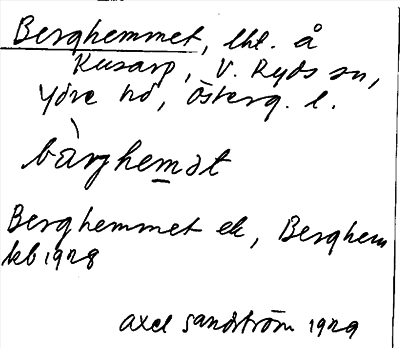 Berghemmet, lhl. å
Kusarp, V. Ryds sn,
Ydre hd, Österg. l.
bàrghemət
Berghemmet ek, Berghem
kb 1928
Axel Sandström 1929